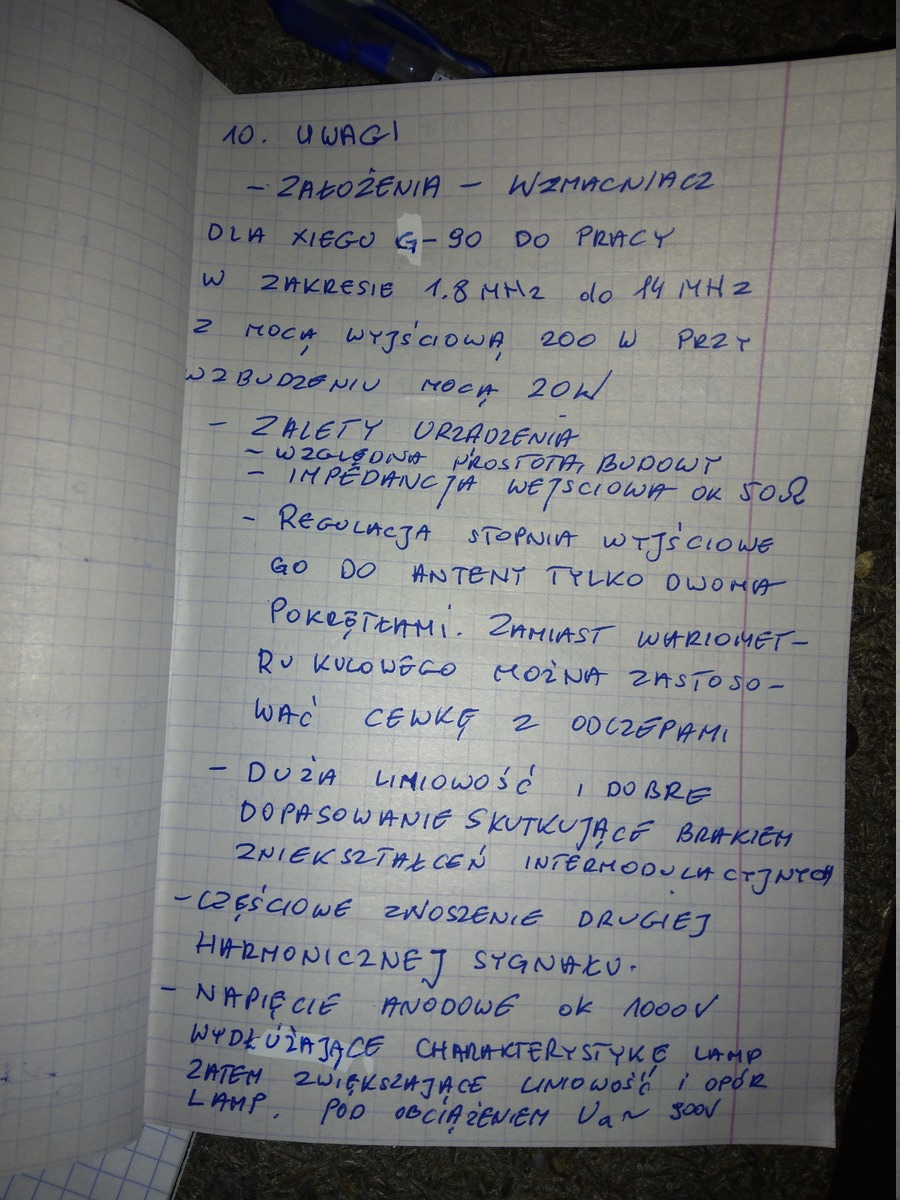 10. UWAGI
- ZAŁOŻENIA - WZMACNIACZ
DLA XIEGU G-90 DO PRACY
W ZAKRESIE 1.8 MHz do 14 MHz
Z MOCĄ WYJŚCIOWĄ 200 W PRZY
WZBUDZENIU MOCĄ 20W
- ZALETY URZĄDZENIA
- WZGLĘDNA PROSTOTA BUDOWY
- IMPEDANCJA WEJSCIOWA OK 50Ω
- REGULACJA STOPNIA WYJŚCIOWE
GO DO ANTENY TYLKO DWOMA
POKRĘTŁAMI. ZAMIAST WARIOMET-
RU KULOWEGO MOŻNA ZASTOSO-
WAĆ CEWKĘ Z ODCZEPAMI
- DUŻA LINIOWOŚĆ I DOBRE
DOPASOWANIE SKUTKUJĄCE BRAKIEM
ZNIEKSZTAŁCEŃ INTERMODULACYJNYCH
- CZĘŚCIOWE ZNOSZENIE DRUGIEJ
HARMONICZNEJ SYGNAŁU.
- NAPIĘCIE ANODOWE OK 1000V
WYDŁUŻAJĄCE CHARAKTERYSTYKĘ LAMP
ZATEM ZWIĘKSZAJĄCE LINIOWOŚĆ I OPÓR
LAMP. POD OBCIĄŻENIEM Ua ~ 900V